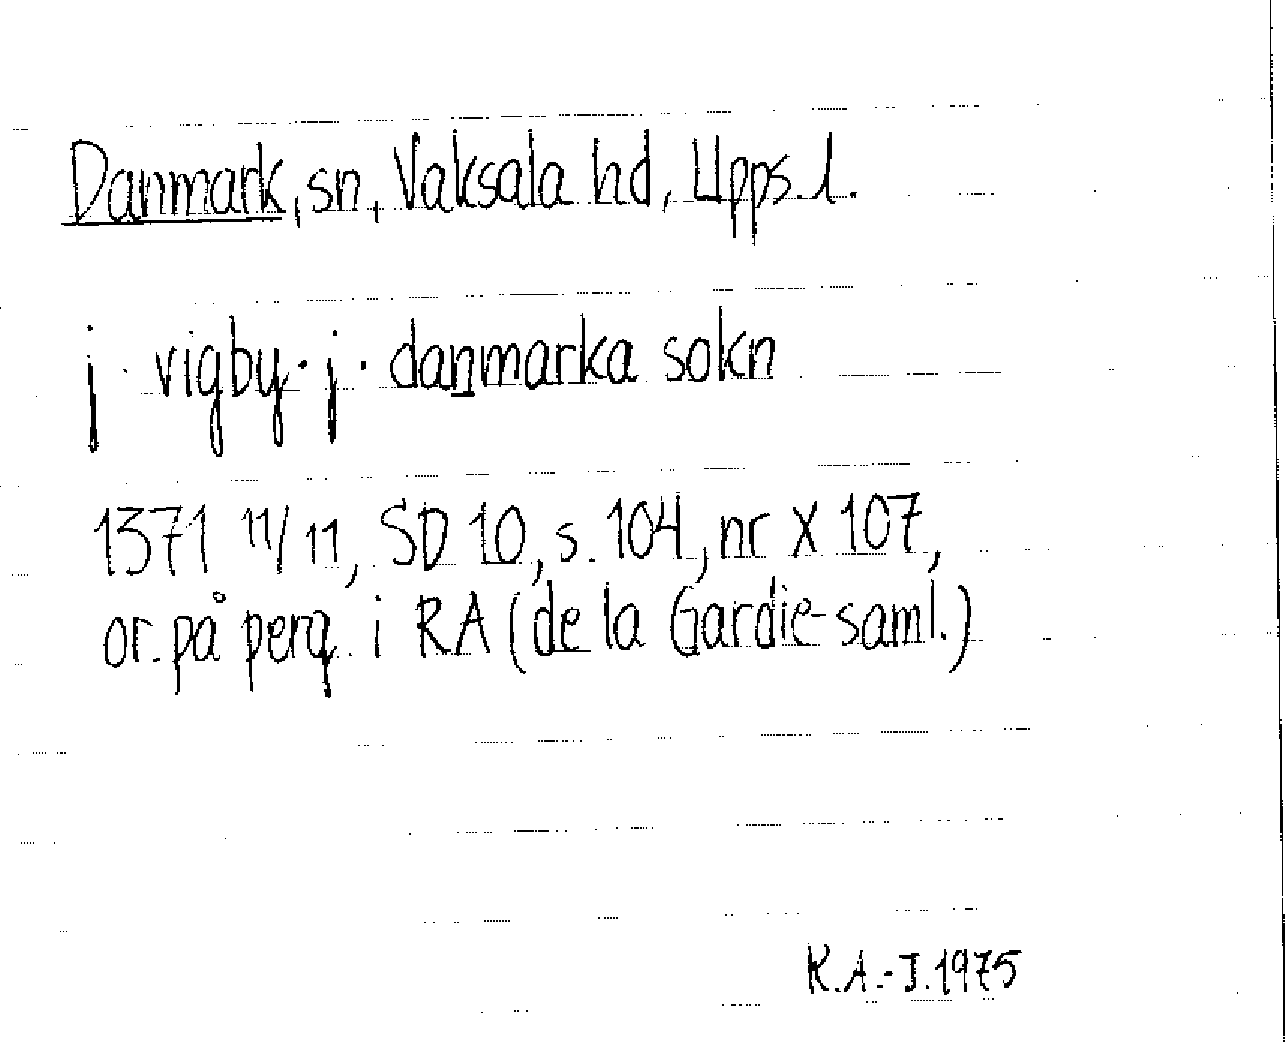 Danmark, sn, Vaksala hd, Upps. l.
j · vigby · j · danmarka sokn
1371 11/11, SD 10, s. 104, nr X 107,
or. på perg. i RA (de la Gardie-saml.)
K.A.-J. 1975